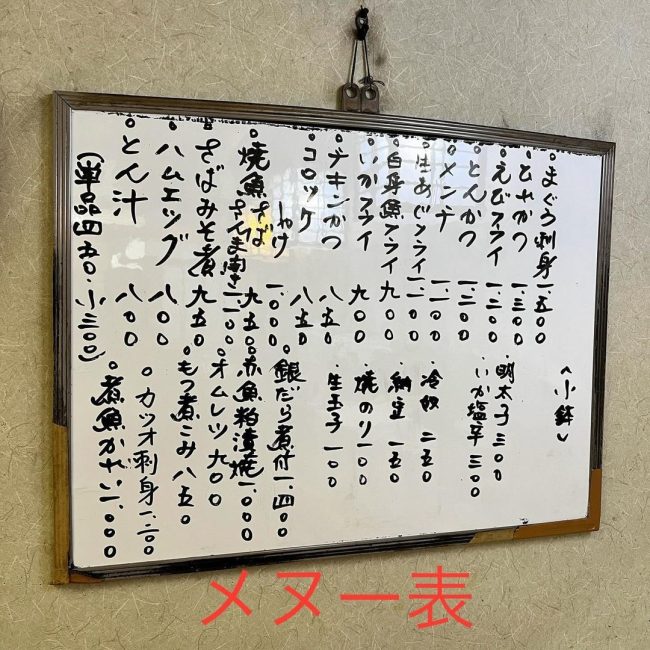 。まぐろ刺身 一.五〇〇
。ひれかつ 一.三〇〇
。えびフライ 一.三〇〇
。とんかつ 一.二〇〇
。メンチ 一.一〇〇
。生あじフライ 一.一〇〇
。白身魚フライ 九〇〇
。いかフライ 九〇〇
。チキンかつ 八五〇
。コロッケ 八五〇
しゃけ 一.〇〇〇
。焼魚さば 九五〇
さんま開き 一.一〇〇
。さばみそ煮 九五〇
。ハムエッグ 八〇〇
。とん汁 八〇〇
(単品四五〇・小三〇〇)
〈小鉢〉
・明太子 三〇〇
・いか塩辛 三〇〇
・冷奴 二五〇
・納豆 一五〇
・焼のり 一〇〇
・生玉子 一〇〇
。銀だら煮付 一.四〇〇
。赤魚粕漬焼 一.〇〇〇
オムレツ 九〇〇
。もつ煮こみ 八五〇
。カツオ刺身 一.二〇〇
。煮魚かれい 一.〇〇〇
メヌー表